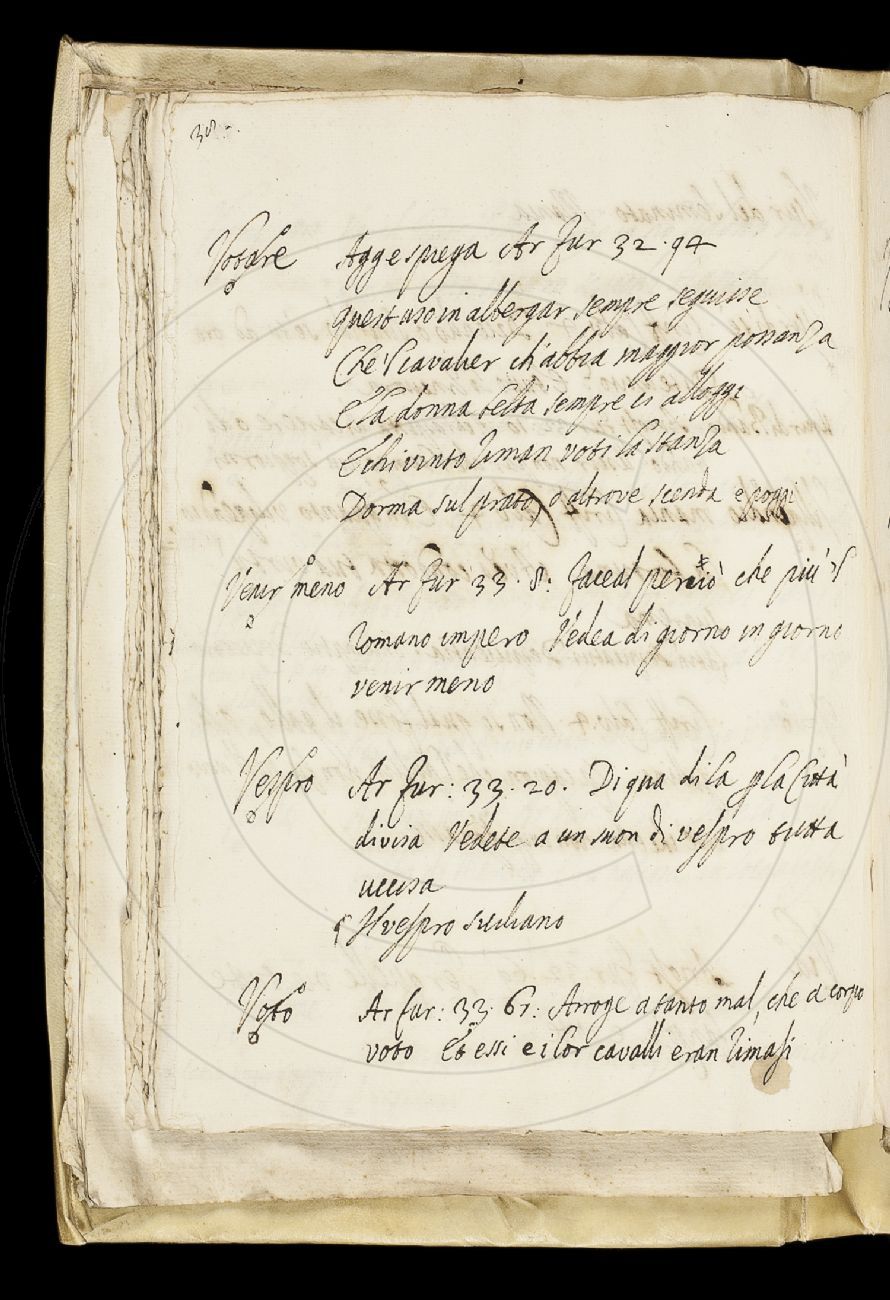 Votare Agg e spiega Ar fur 32.94
Quest uso in albergar sempre seguisse
Che'l cavalier ch'abbia maggior possanza
E la donna beltà sempre ci alloggi
E chi vinto riman voti la stanza
Dorma sul prato, o altrove scenda e poggi
Venir meno Ar fur 33.8: faceal perciò che più'l
romano impero Vedea di giorno in giorno
venir meno
Vespro Ar fur: 33.20. Di qua di là p la Città
divisa Vedete a un suon di vespro tutta
uccisa
Il vespro siciliano
Voto Ar fur: 33.61: Arroge a tanto mal, che a corpo
voto Et essi e i lor cavalli eran rimasi